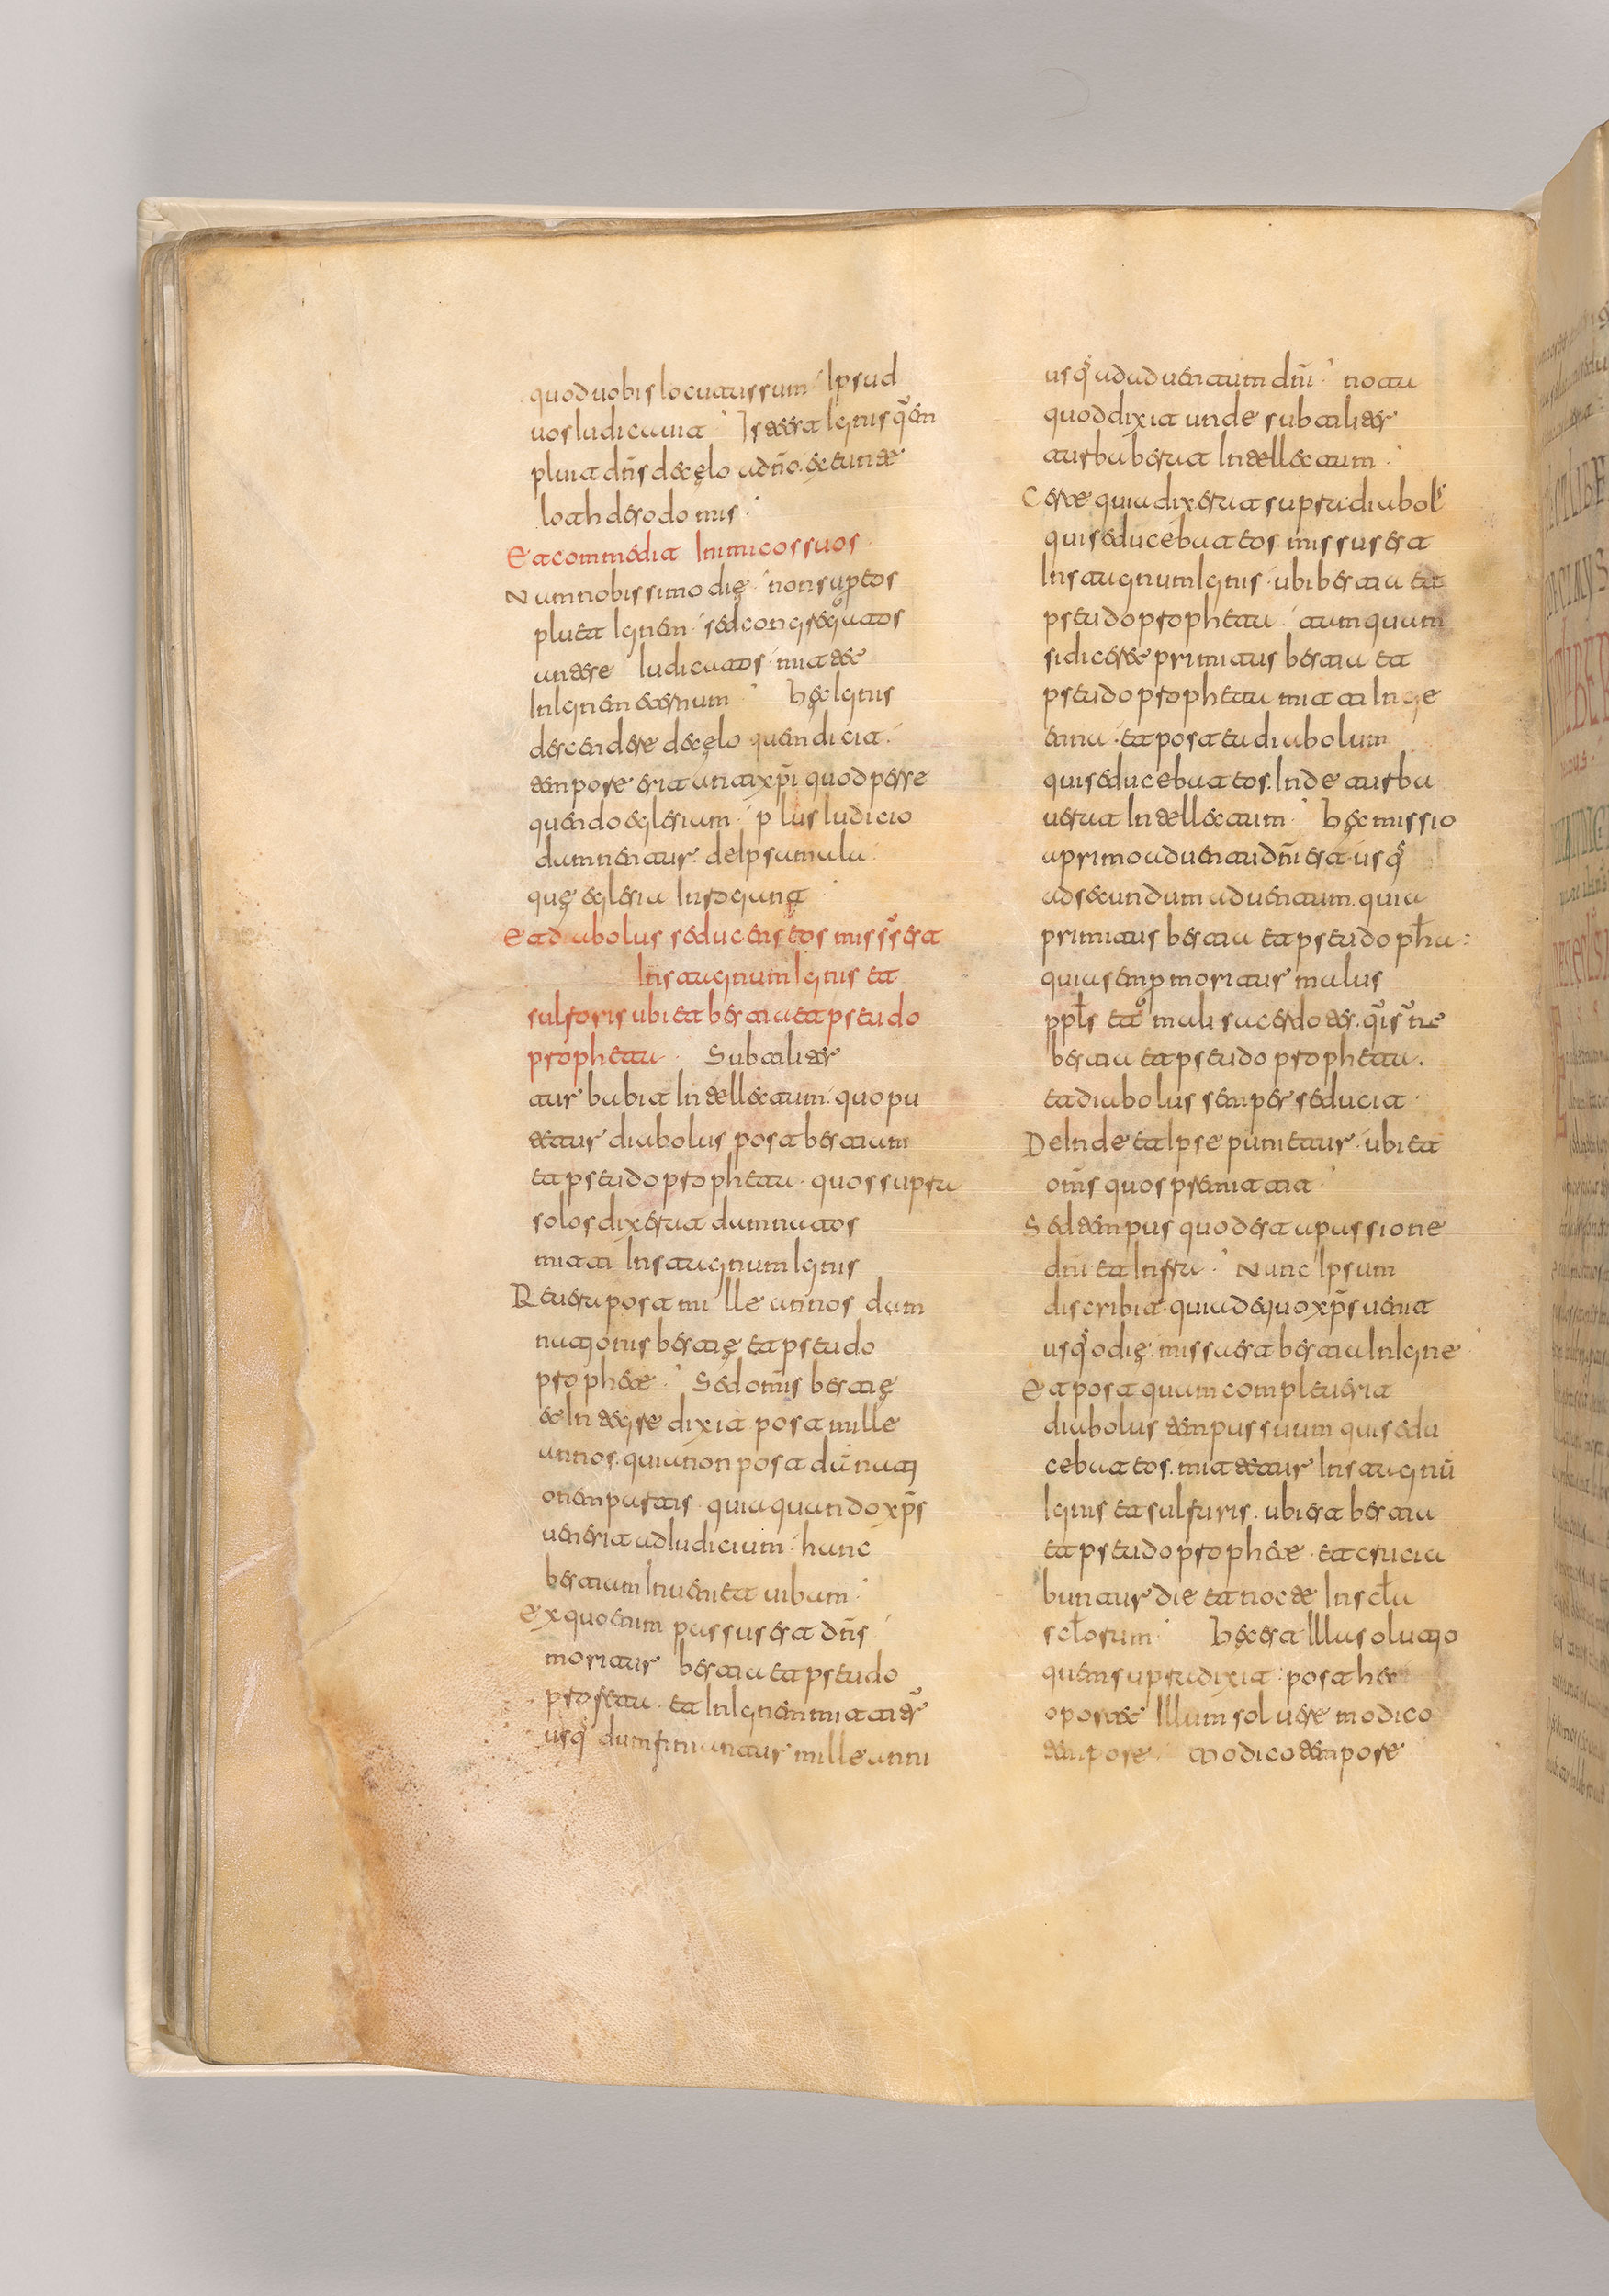 quod uobis locutus sum · Ipsud
uos Iudicauit · est Ignis q̃em
pluit dn̄s de cęlo a dn̄o · et unde
loth de sodomis ·
Et commedit Inimicos suos ·
Nam nobissimo die · non super eos
pluet Ignem · sed congregatos
ante se Iudicatos mittet
In Ignem eternum · hęc Ignis
descendere de cęlo quem dicit ·
tempore erit antixp̄i quod perse
quendo eglesiam · plus Iudicio
damnentur · de Ipsa mala
quę eglesia Inrogant ·
Et diabolus seducens eos miss̃ est
In stagnum Ignis et
sulforis ubi et bestia et pseudo
propheta · Subtiliter
turbabit Intellectum · quo pu
tetur diabolus post bestiam
et pseudopropheta · quos supra
solos dixerat damnatos
mitti In stagnum Ignis
Reuera post mille annos dam
nationis bestię et pseudo
prophete · Sed omīs bestię
et Integre dixit post mille
annos · quia non post dānati
onem putatis · quia quando xp̄s
uenerit ad Iudicium · hanc
bestiam Inueniet uibam ·
Ex quo enim passus est dn̄s
moritur bestia et pseudo
profeta · et In Ignem
usq̃ dum finiantur mille anni
usq̃ ad aduentum dn̄i · nota
quod dixit unde subtiliter
turbaberit Intellectum ·
Certe quia dixerat supra diabol
qui seducebat eos missus est
In stagnum Ignis · ubi bestia et
pseudopropheta · tumquam
si diceret primitus bestia et
pseudopropheta mitti In ge
enna · et postea diabolum
qui seducebat eos · Inde turba
uerat Intellectum · hęc missio
a primo aduentu dn̄i est usq̃
ad secundum aduentum · quia
primitus bestia et pseudoph̄a
quia semp̱ moritur malus
ppl̄s et mali sacerdotes ·
bestia et pseudopropheta ·
et diabolus semper seducit ·
DeInde et Ipse punietur · ubi et
om̄s quos premittit ·
Sed tempus quod est a passione
dn̄i et Infra · Nunc Ipsum
discribit · quia de quo xp̄s uenit
usq̃ odię · missa est bestia In Igne
Et postquam compleuerit
diabolus tempus suum qui sedu
cebat eos · mittetur In stagnū
Ignis et sulfuris · ubi est bestia
et pseudoprophete · et crucia
buntur die et nocte In scl̄a
scl̄orum · hec est Illa solutio
quem supra dixit · post hec
oportet Illum soluere modico
tempore · Modico tempore